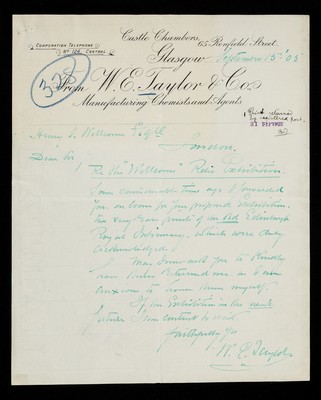 Castle Chambers,
65 Renfield Street.
CORPORATION TELEPHONE
Nº 124, CENTRAL
Glasgow September 15th 05
328
From W. E. Taylor & Co.
Manufacturing Chemists and Agents
Prints returned
by registered post.
21 SEP 1905
Henry S. Wellcome Esqre
London.
Dear Sir,
Re the "Wellcome" Relic Exhibition.
Some considerable time ago I forwarded
you on loan for your proposed Exhibition
two very rare prints of an old Edinburgh
Royal Infirmary, which were duly
acknowledged.
May I now ask you to kindly
have them returned me as I am
anxious to have them myself.
If the Exhibition is in the near
future I am content to wait
Faithfully Yrs
W. E. Taylor